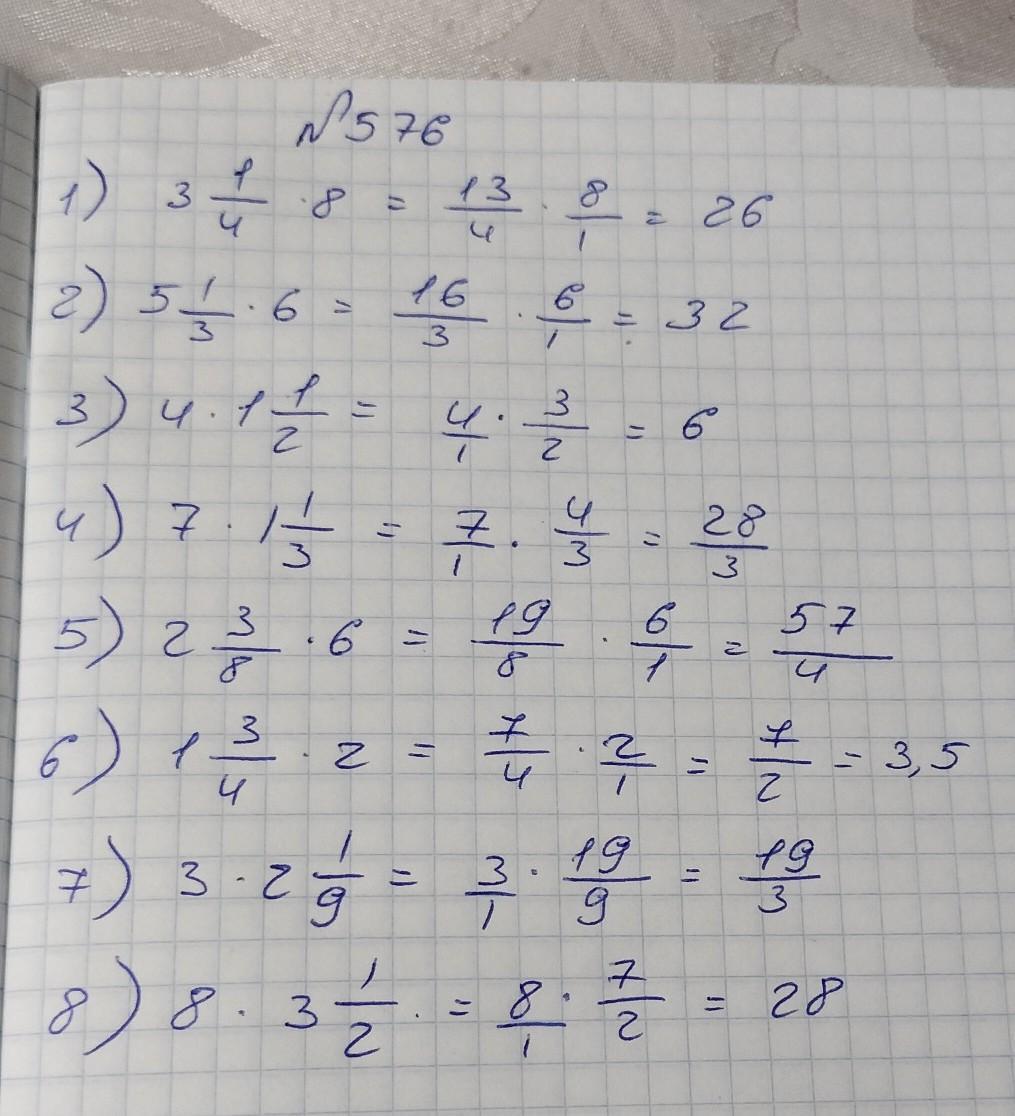 №576
1) 3 1/4 · 8 = 13/4 · 8/1 = 26
2) 5 1/3 · 6 = 16/3 · 6/1 = 32
3) 4 · 1 1/2 = 4/1 · 3/2 = 6
4) 7 · 1 1/3 = 7/1 · 4/3 = 28/3
5) 2 3/8 · 6 = 19/8 · 6/1 = 57/4
6) 1 3/4 · 2 = 7/4 · 2/1 = 7/2 = 3,5
7) 3 · 2 1/9 = 3/1 · 19/9 = 19/3
8) 8 · 3 1/2 · = 8/1 · 7/2 = 28